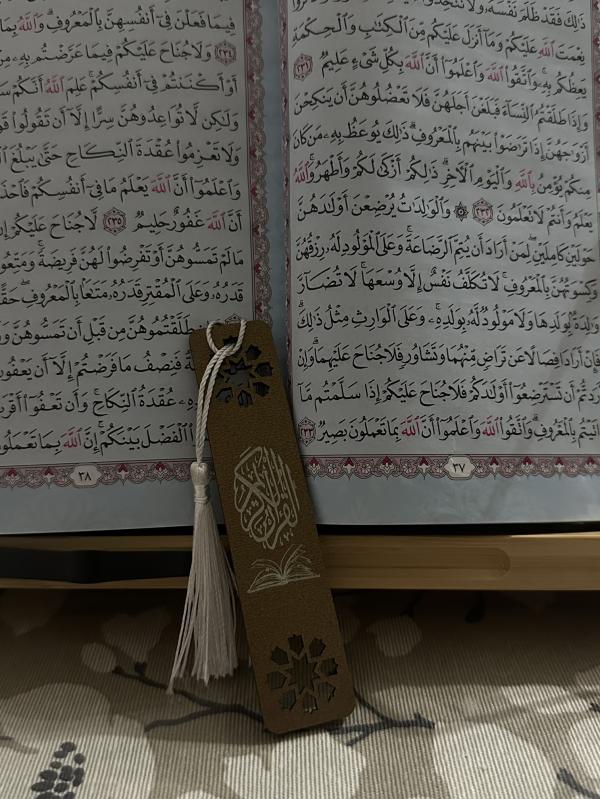 ذَٰلِكَ فَقَدْ ظَلَمَ نَفْسَهُۥ وَلَا تَتَّخِذُوٓا۟
نِعْمَتَ ٱللَّهِ عَلَيْكُمْ وَمَآ أَنزَلَ عَلَيْكُم مِّنَ ٱلْكِتَٰبِ وَٱلْحِكْمَةِ
يَعِظُكُم بِهِۦ وَٱتَّقُوا۟ ٱللَّهَ وَٱعْلَمُوٓا۟ أَنَّ ٱللَّهَ بِكُلِّ شَىْءٍ عَلِيمٌ ٢٣١
وَإِذَا طَلَّقْتُمُ ٱلنِّسَآءَ فَبَلَغْنَ أَجَلَهُنَّ فَلَا تَعْضُلُوهُنَّ أَن يَنكِحْنَ
أَزْوَٰجَهُنَّ إِذَا تَرَٰضَوْا۟ بَيْنَهُم بِٱلْمَعْرُوفِ ذَٰلِكَ يُوعَظُ بِهِۦ مَن كَانَ
مِنكُمْ يُؤْمِنُ بِٱللَّهِ وَٱلْيَوْمِ ٱلْءَاخِرِ ذَٰلِكُمْ أَزْكَىٰ لَكُمْ وَأَطْهَرُ وَٱللَّهُ
يَعْلَمُ وَأَنتُمْ لَا تَعْلَمُونَ ٢٣٢ ۞ وَٱلْوَٰلِدَٰتُ يُرْضِعْنَ أَوْلَٰدَهُنَّ
حَوْلَيْنِ كَامِلَيْنِ لِمَنْ أَرَادَ أَن يُتِمَّ ٱلرَّضَاعَةَ وَعَلَى ٱلْمَوْلُودِ لَهُۥ رِزْقُهُنَّ
وَكِسْوَتُهُنَّ بِٱلْمَعْرُوفِ لَا تُكَلَّفُ نَفْسٌ إِلَّا وُسْعَهَا لَا تُضَآرَّ
وَٰلِدَةٌۢ بِوَلَدِهَا وَلَا مَوْلُودٌ لَّهُۥ بِوَلَدِهِۦ وَعَلَى ٱلْوَارِثِ مِثْلُ ذَٰلِكَ
فَإِنْ أَرَادَا فِصَالًا عَن تَرَاضٍ مِّنْهُمَا وَتَشَاوُرٍ فَلَا جُنَاحَ عَلَيْهِمَا وَإِنْ
أَرَدتُّمْ أَن تَسْتَرْضِعُوٓا۟ أَوْلَٰدَكُمْ فَلَا جُنَاحَ عَلَيْكُمْ إِذَا سَلَّمْتُم مَّآ
ءَاتَيْتُم بِٱلْمَعْرُوفِ وَٱتَّقُوا۟ ٱللَّهَ وَٱعْلَمُوٓا۟ أَنَّ ٱللَّهَ بِمَا تَعْمَلُونَ بَصِيرٌ ٢٣٣
٣٧
فِيمَا فَعَلْنَ فِىٓ أَنفُسِهِنَّ بِٱلْمَعْرُوفِ وَٱللَّهُ بِمَا
٢٣٤ وَلَا جُنَاحَ عَلَيْكُمْ فِيمَا عَرَّضْتُم بِهِۦ مِنْ
أَوْ أَكْنَنتُمْ فِىٓ أَنفُسِكُمْ عَلِمَ ٱللَّهُ أَنَّكُمْ
وَلَٰكِن لَّا تُوَاعِدُوهُنَّ سِرًّا إِلَّآ أَن تَقُولُوا۟
وَلَا تَعْزِمُوا۟ عُقْدَةَ ٱلنِّكَاحِ حَتَّىٰ يَبْلُغَ
وَٱعْلَمُوٓا۟ أَنَّ ٱللَّهَ يَعْلَمُ مَا فِىٓ أَنفُسِكُمْ
أَنَّ ٱللَّهَ غَفُورٌ حَلِيمٌ ٢٣٥ لَّا جُنَاحَ عَلَيْكُمْ
مَا لَمْ تَمَسُّوهُنَّ أَوْ تَفْرِضُوا۟ لَهُنَّ فَرِيضَةً
قَدَرُهُۥ وَعَلَى ٱلْمُقْتِرِ قَدَرُهُۥ مَتَٰعًۢا بِٱلْمَعْرُوفِ
طَلَّقْتُمُوهُنَّ مِن قَبْلِ أَن تَمَسُّوهُنَّ
فَنِصْفُ مَا فَرَضْتُمْ إِلَّآ أَن يَعْفُونَ
عُقْدَةُ ٱلنِّكَاحِ وَأَن تَعْفُوٓا۟
ٱلْفَضْلَ بَيْنَكُمْ إِنَّ ٱللَّهَ بِمَا تَعْمَلُونَ
٣٨
القرآن الكريم